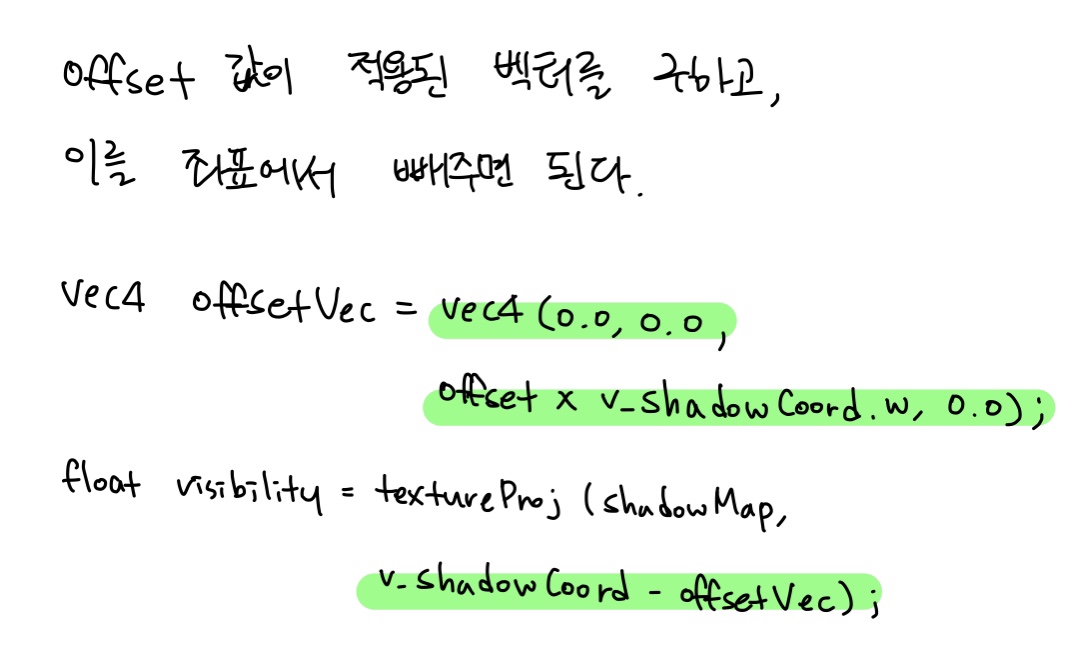 offset 값이 적용된 벡터를 구하고,
이를 좌표에서 빼주면 된다.
vec4 offsetVec = vec4 (0.0, 0.0,
offset x v_shadowCoord.w, 0.0);
float visibility = textureProj (shadowMap,
v_shadowCoord - offsetVec);